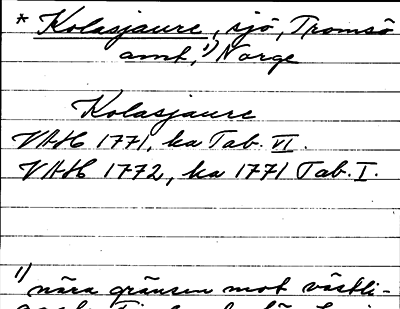 * Kolasjaure, sjö, Tromsö
amt,¹⁾ Norge
Kolasjaure
VAH 1771, ka Tab. VI.
VAH 1772, ka 1771 Tab. I.
¹⁾ nära gränsen mot västli-